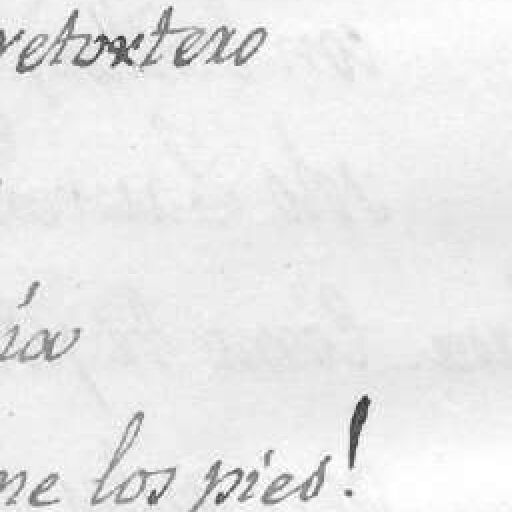 retortero
ía
me los pies!